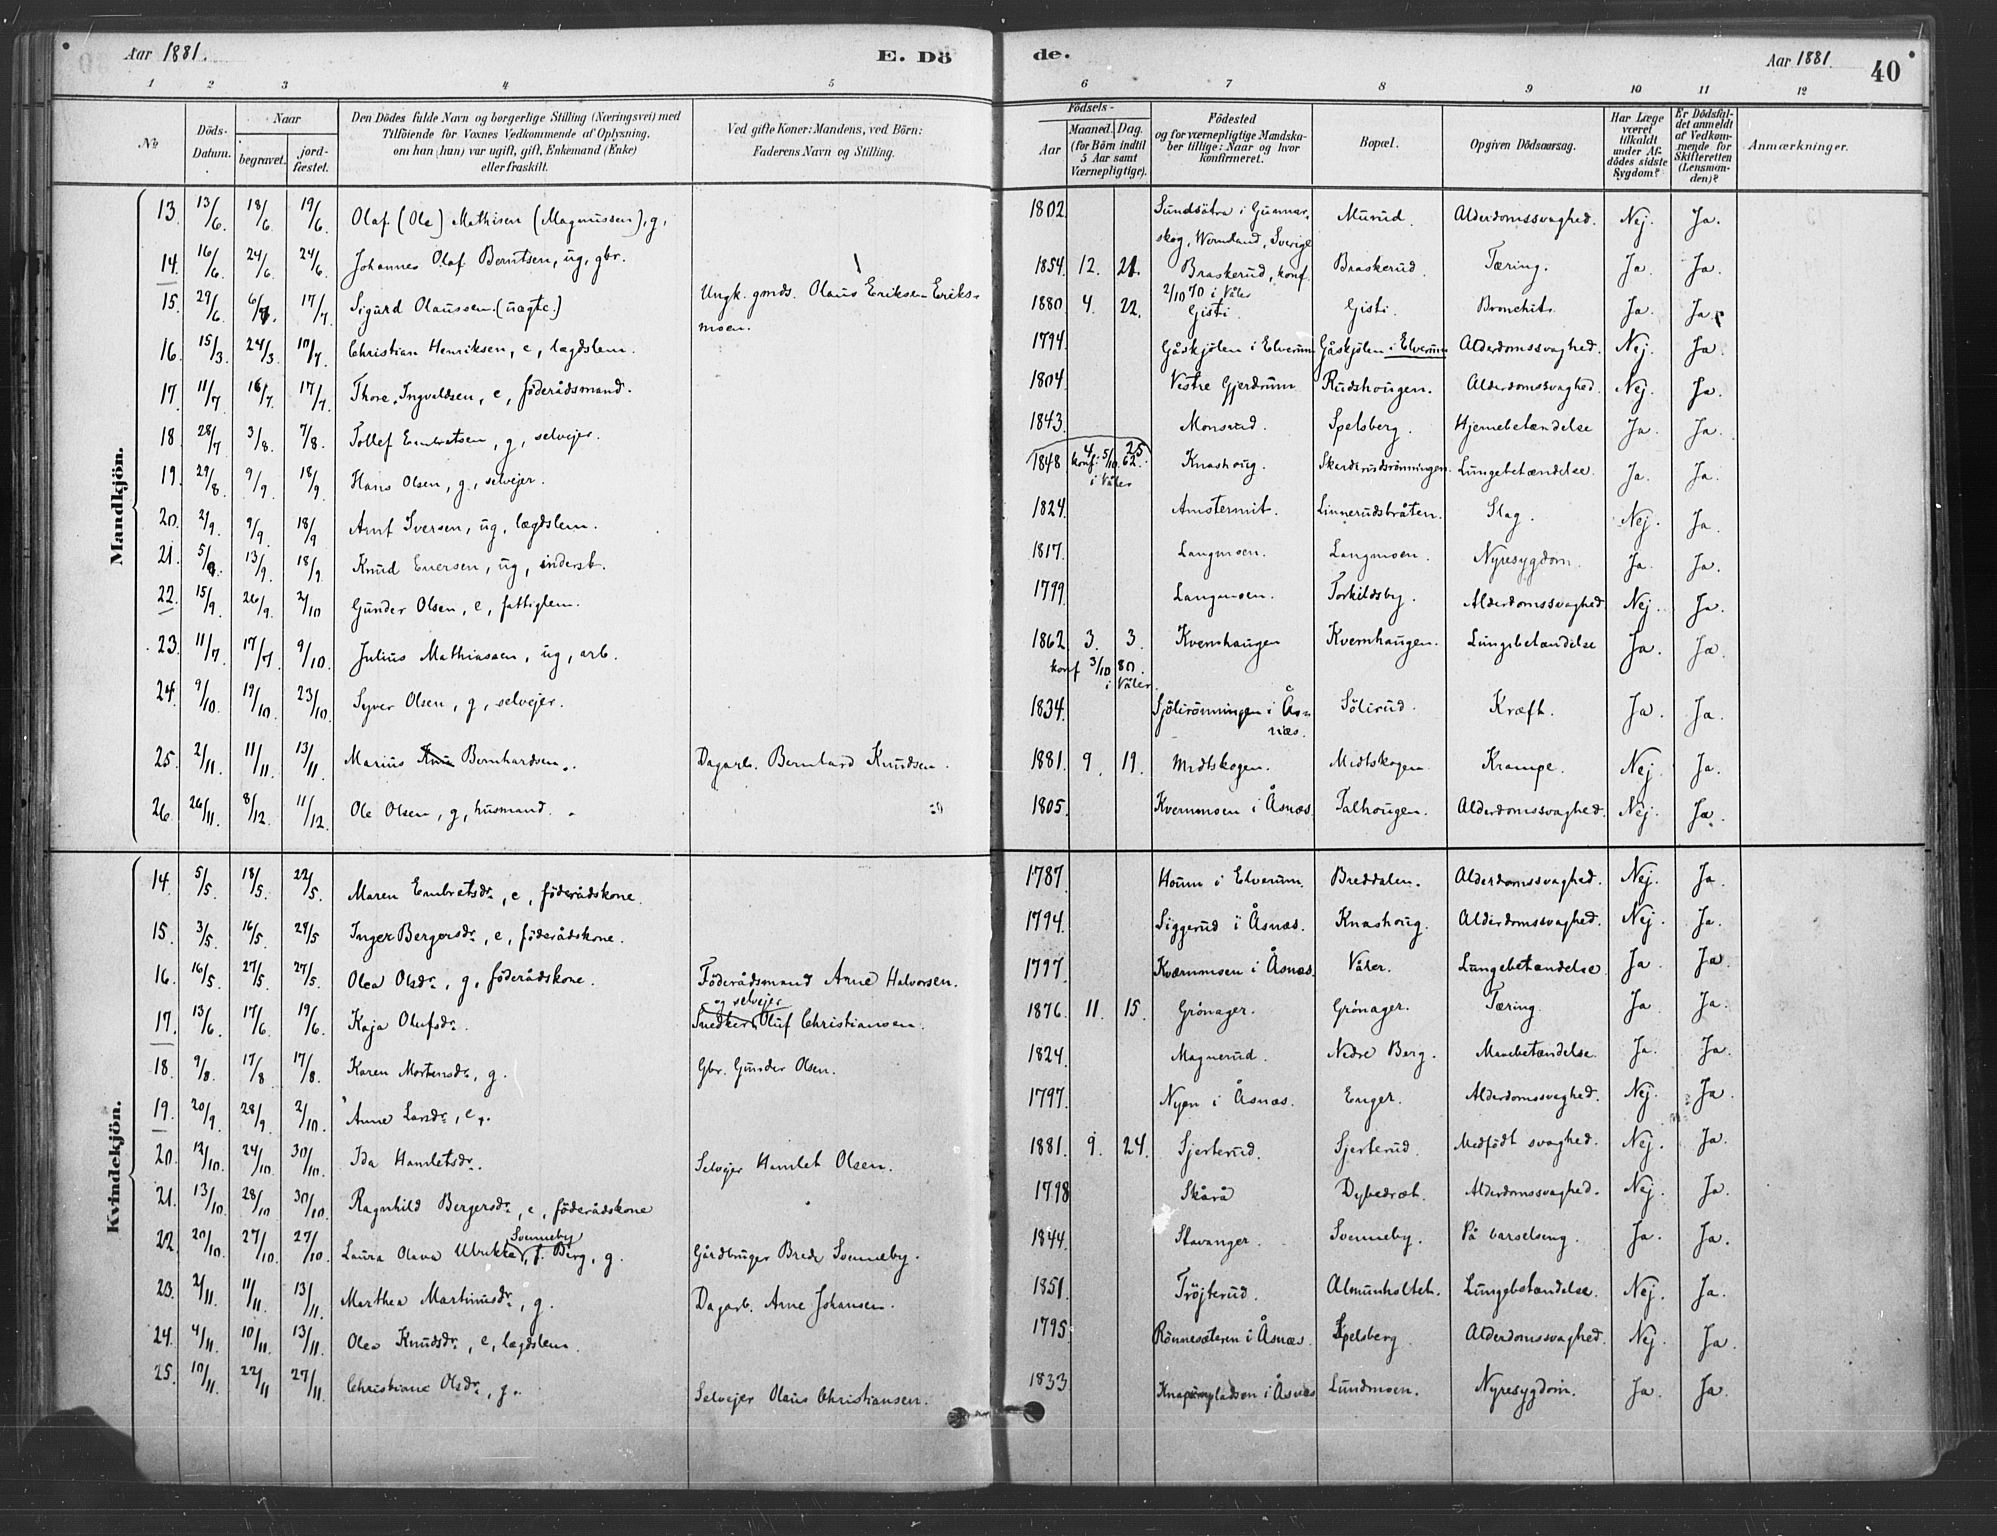 Aar 1881. E. Dö de. Aar 1881. 40
1 2 3 4 5 6 7 8 9 10 11 12
No
Döds-Datum.
Naar
begravet.
jord-fæstet.
Den Dödes fulde Navn og borgerlige Stilling (Næringsvei) med
Tilföiende for Voxnes Vedkommende af Oplysning,
om han (hun) var ugift, gift, Enkemand (Enke)
eller fraskilt.
Ved gifte Koner: Mandens, ved Börn:
Faderens Navn og Stilling.
Födsels-
Aar
Maaned. Dag.
(for Börn indtil
5 Aar samt
Værnepligtige).
Födested
og for værnepligtige Mandska-
ber tillige: Naar og hvor
konfirmeret.
Bopæl.
Opgiven Dödsaarsag.
Har Læge
været
tilkaldt
under Af-
dödes sidste
Sygdom?
Er Dödsfal-
det anmeldt
af Vedkom-
mende for
Skifteretten
(Lensman-
den)?
Anmærkninger.
Mandkjön.
13. 13/6. 18/6 19/6. Olaf (Ole) Mathisen (Magnussen), g, 1802. Sundsätra i Gunnar-skog, Wermland, Sverige Murud. Alderdomssvaghed. Nej. Ja.
14. 16/6 24/6. 24/6. Johannes Olaf Berntsen, ug, gbr. 1854. 12. 21. Braskerud, konf. 2/10 70 i Våler Braskerud. Tæring. Ja. Ja.
15. 29/6. 6/7. 17/7 Sigurd Olaussen (uægte.) Ungk. gmds. Olaus Eriksen Eriks-moen. 1880. 4. 22. Gisti. Gisti. Bronchit. Ja. Ja.
16. 15/3. 24/3. 17/7. Christian Henriksen, e, lægdslem. 1794. Gåskjölen i Elverum Gåskjölen i Elverum Alderdomssvaghed. Nej. Ja.
17. 11/7 16/7. 17/7. Thore Ingvaldsen, e, föderådsmand. 1804. Vestre Gjerdrum Rudshougen. Alderdomssvaghed. Nej. Ja.
18. 28/7 3/8. 7/8. Tollef Embretsen, g, selvejer. 1843. Monsrud. Spelsberg. Hjernebetændelse Ja. Ja.
19. 29/8. 9/9. 18/9 Hans Olsen, g, selvejer. 1848 4 25 konf. 5/10 62. i Våler Knashoug. Skarderudsrönningen. Lungebetændelse. Ja. Ja.
20. 2/9. 9/9. 18/9 Arnt Iversen, ug, lægdslem. 1824. Amstermit. Linnerudsbråten. Slag. Nej. Ja.
21. 5/9. 13/9. 18/9. Knud Enersen, ug, inderst. 1817. Langmoen. Langmoen. Nyresygdom. Ja. Ja.
22. 15/9. 26/9. 2/10 Gunder Olsen, e, fattiglem. 1799. Langmoen. Torkildsby. Alderdomssvaghed Nej. Ja.
23. 11/7. 17/7. 9/10. Julius Mathiassen, ug, arb. 1862. 3. 3. konf 3/10 80. i Våler. Kvernhaugen Kvernhaugen. Lungebetændelse Ja. Ja.
24. 9/10. 19/10. 23/10. Syver Olsen, g, selvejer. 1834. Sjölirönningen i Åsnæs. Sölirud. Kræft. Ja. Ja.
25. 2/11. 11/11. 13/11. Marius Bernhardsen. Dagarb. Bernhard Knudsen. 1881. 9. 19. Midtskogen. Midtskogen Krampe. Nej. Ja.
26. 26/11. 8/12. 11/12. Ole Olsen, g, husmand. 1805. Kvernmoen i Åsnæs. Talhougen. Alderdomssvaghed. Nej. Ja.
Kvindekjön.
14. 5/5. 18/5. 22/5. Maren Embretsdr., e, föderådskone. 1787. Houm i Elverum. Breddalen. Alderdomssvaghed. Nej. Ja.
15. 3/5. 16/5. 29/5 Inger Bergersdr., e, föderådskone. 1794. Siggerud i Åsnæs. Knashoug. Alderdomssvaghed. Nej. Ja.
16. 16/5. 27/5. 27/5. Olea Olsdr., g, föderådskone. Föderådsmand Arne Halvorsen. 1797. Kværnmoen i Åsnæs. Våler. Lungebetændelse. Ja. Ja.
17. 13/6. 17/6. 19/6. Kaja Olufsdr. Snedker og selvejer Oluf Christiansen. 1876. 11. 15. Grönager. Grönager. Tæring. Ja. Ja.
18. 9/8. 17/8 17/8. Karen Mortensdr., g. Gbr. Gunder Olsen. 1824. Magnerud. Nedre Berg. Mavebetændelse. Ja. Ja.
19. 20/9. 28/9. 2/10. Anne Larsdr., e. 1797. Nyen i Åsnæs. Enger. Alderdomssvaghed. Nej. Ja.
20. 12/10. 24/10. 30/10. Ida Hamletsdr. Selvejer Hamlet Olsen. 1881. 9. 24. Sjerterud. Sjerterud. Medfödt svaghed. Nej. Ja.
21. 13/10. 28/10 30/10. Ragnhild Bergersdr., e, föderådskone 1798 Skårå Dybedræt. Alderdomssvaghed. Nej. Ja.
22. 20/10. 27/10. 27/10 Laura Olava Ulrikke Svenneby, f. Berg, g. Gårdbruger Brede Svenneby. 1844. Stavanger. Svenneby. På barselseng. Ja. Ja.
23. 2/11. 11/11. 13/11. Marthea Martinusdr., g. Dagarb. Arne Johansen. 1851. Tröjterud. Almunholtet. Lungebetændelse. Nej. Ja.
24. 4/11. 10/11. 13/11. Olea Knudsdr., e, lægdslem. 1795. Rönnesæteren i Åsnæs. Spelsberg. Alderdomssvaghed. Nej. Ja.
25. 10/11. 22/11 27/11. Christiane Olsdr., g. Selvejer Olaus Christiansen. 1833 i Åsnæs Lundmoen. Nyresygdom. Ja. Ja.